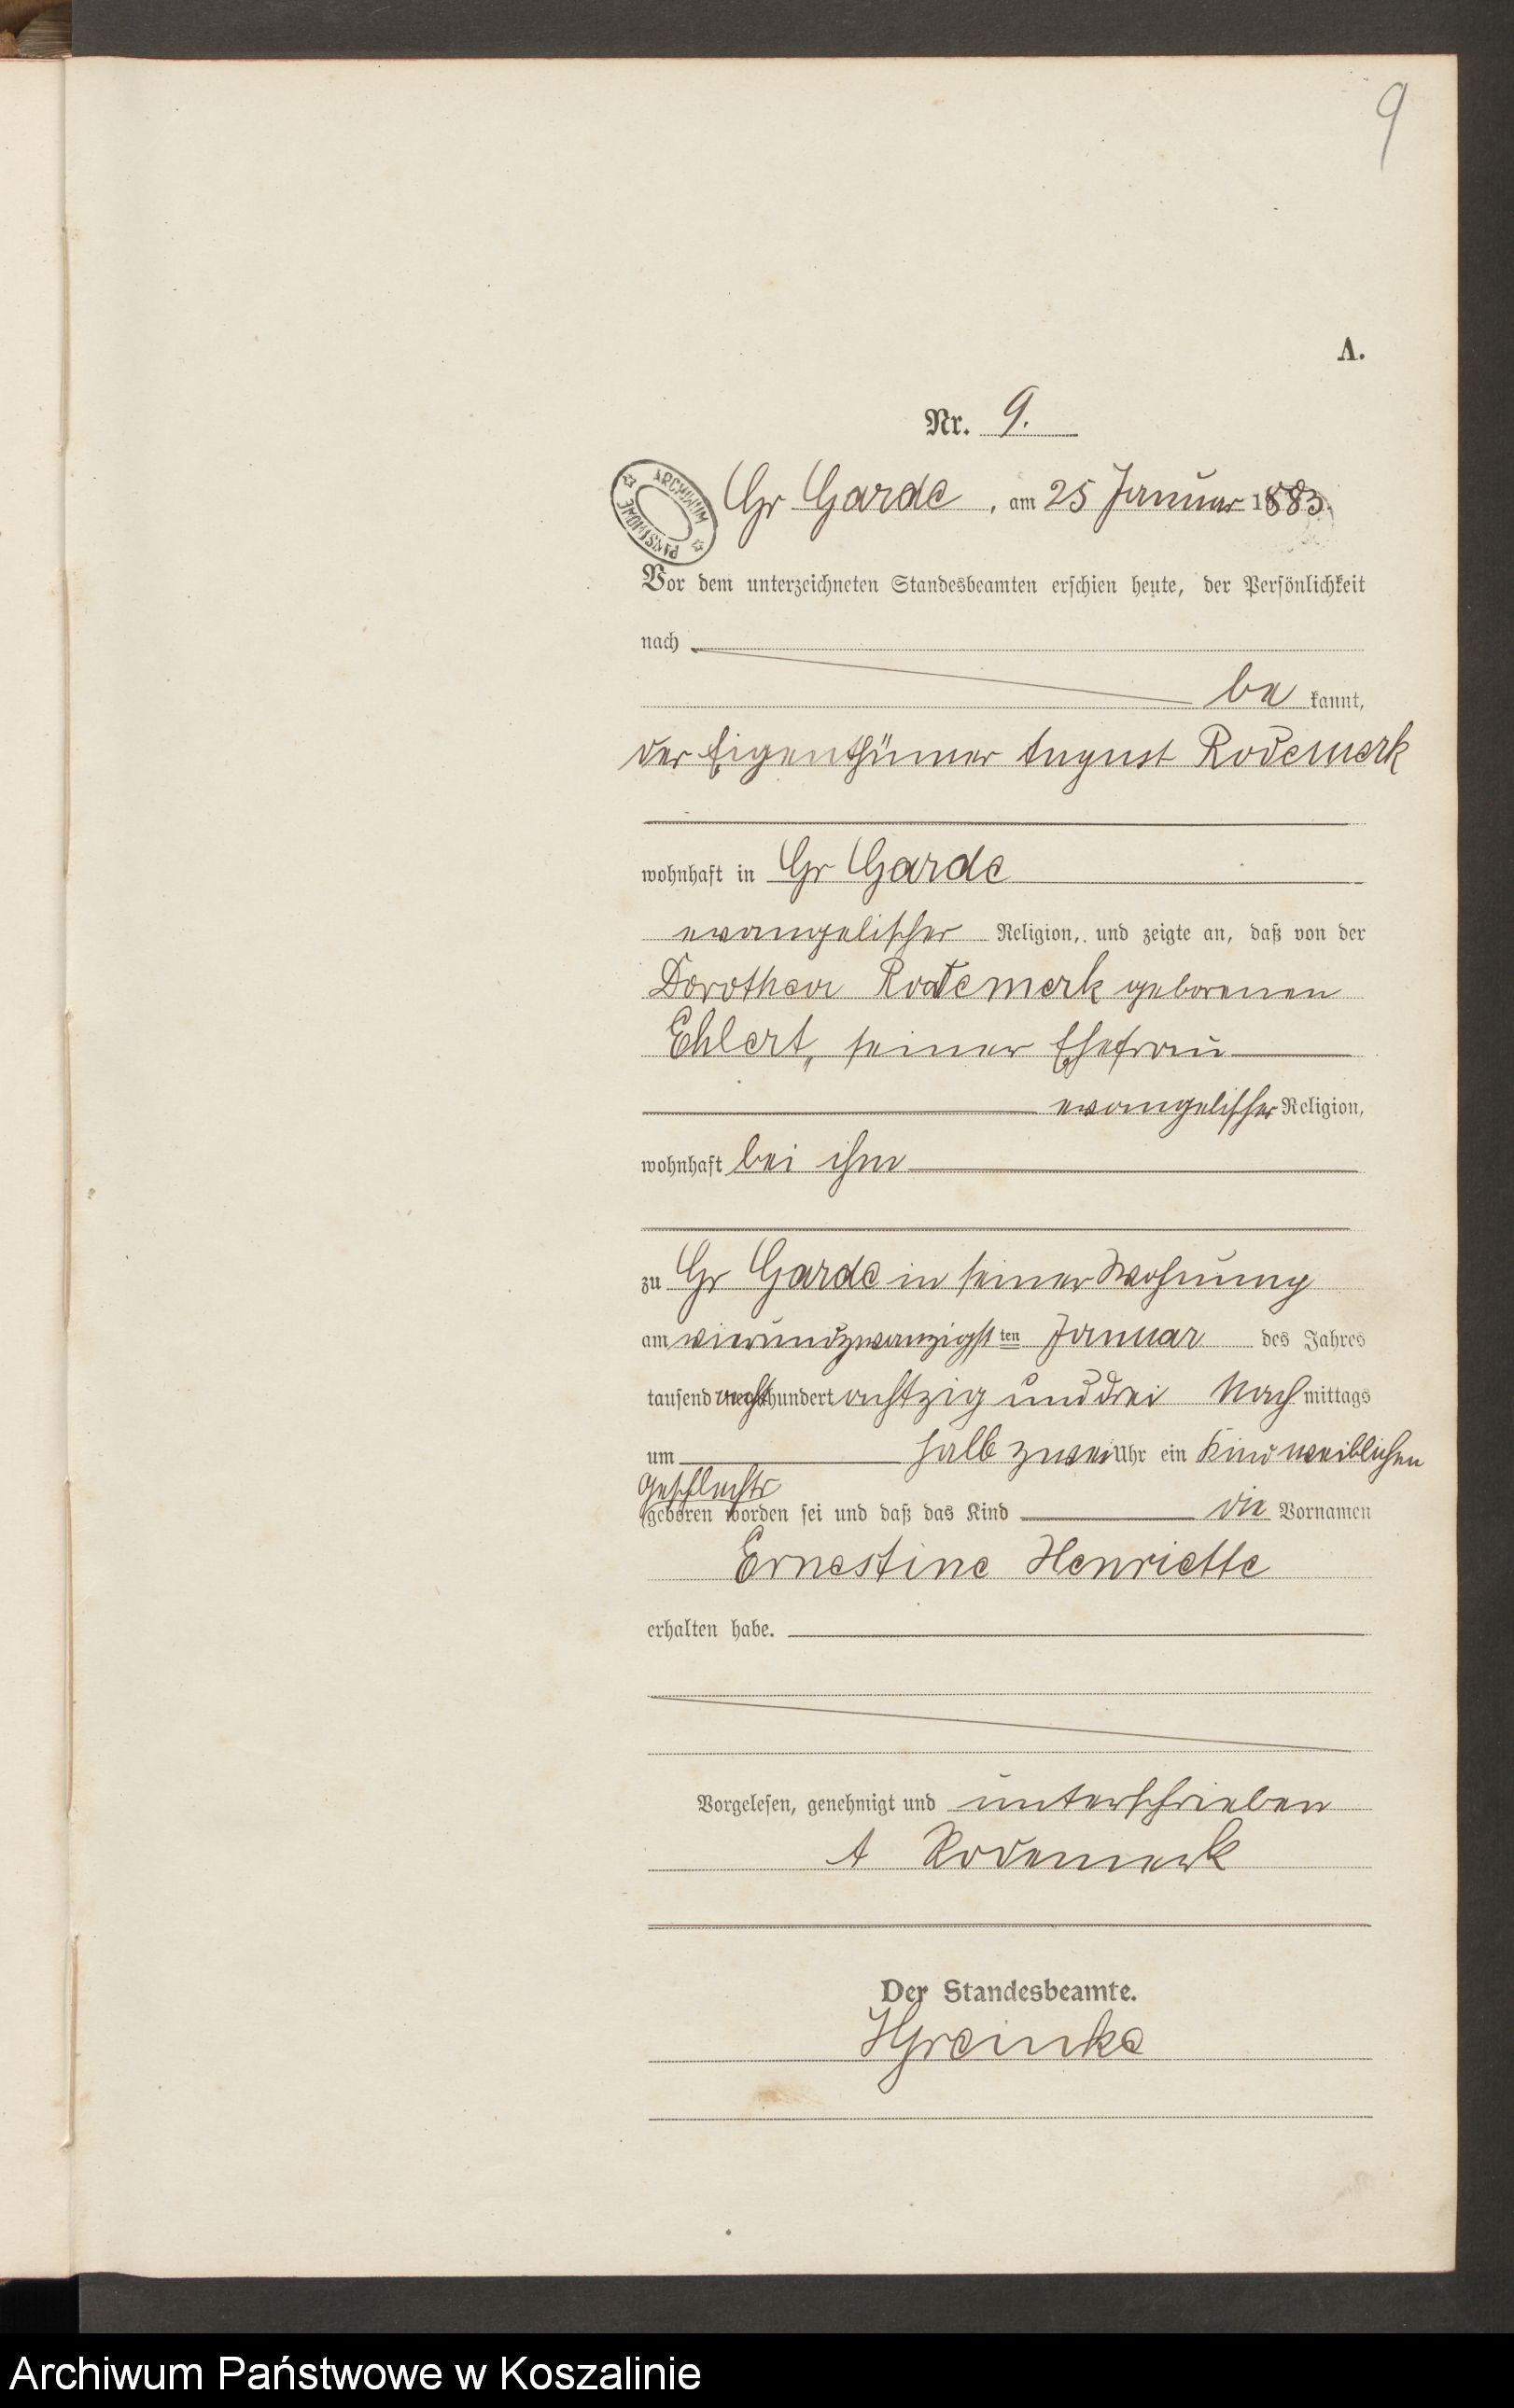 9
A.
Nr. 9.
ARCHIWUM PAŃSTWOWE
Gr Garde, am 25 Januar 1883.
Vor dem unterzeichneten Standesbeamten erschien heute, der Persönlichkeit
nach
be kannt,
der Eigenthümer August Rodemerk
wohnhaft in Gr Garde
evangelischer Religion, und zeigte an, daß von der
Dorothea Rodemerk geborenen
Ehlert, seiner Ehefrau
evangelischer Religion,
wohnhaft bei ihm
zu Gr Garde in seiner Wohnung
am vierundzwanzigsten Januar des Jahres
tausend acht hundert achtzig und drei Nach mittags
um halb zwei Uhr ein Kind weiblichen
Geschlechts
geboren worden sei und daß das Kind die Vornamen
Ernestine Henriette
erhalten habe.
Vorgelesen, genehmigt und unterschrieben
A Rodemerk
Der Standesbeamte.
Archiwum Państwowe w Koszalinie